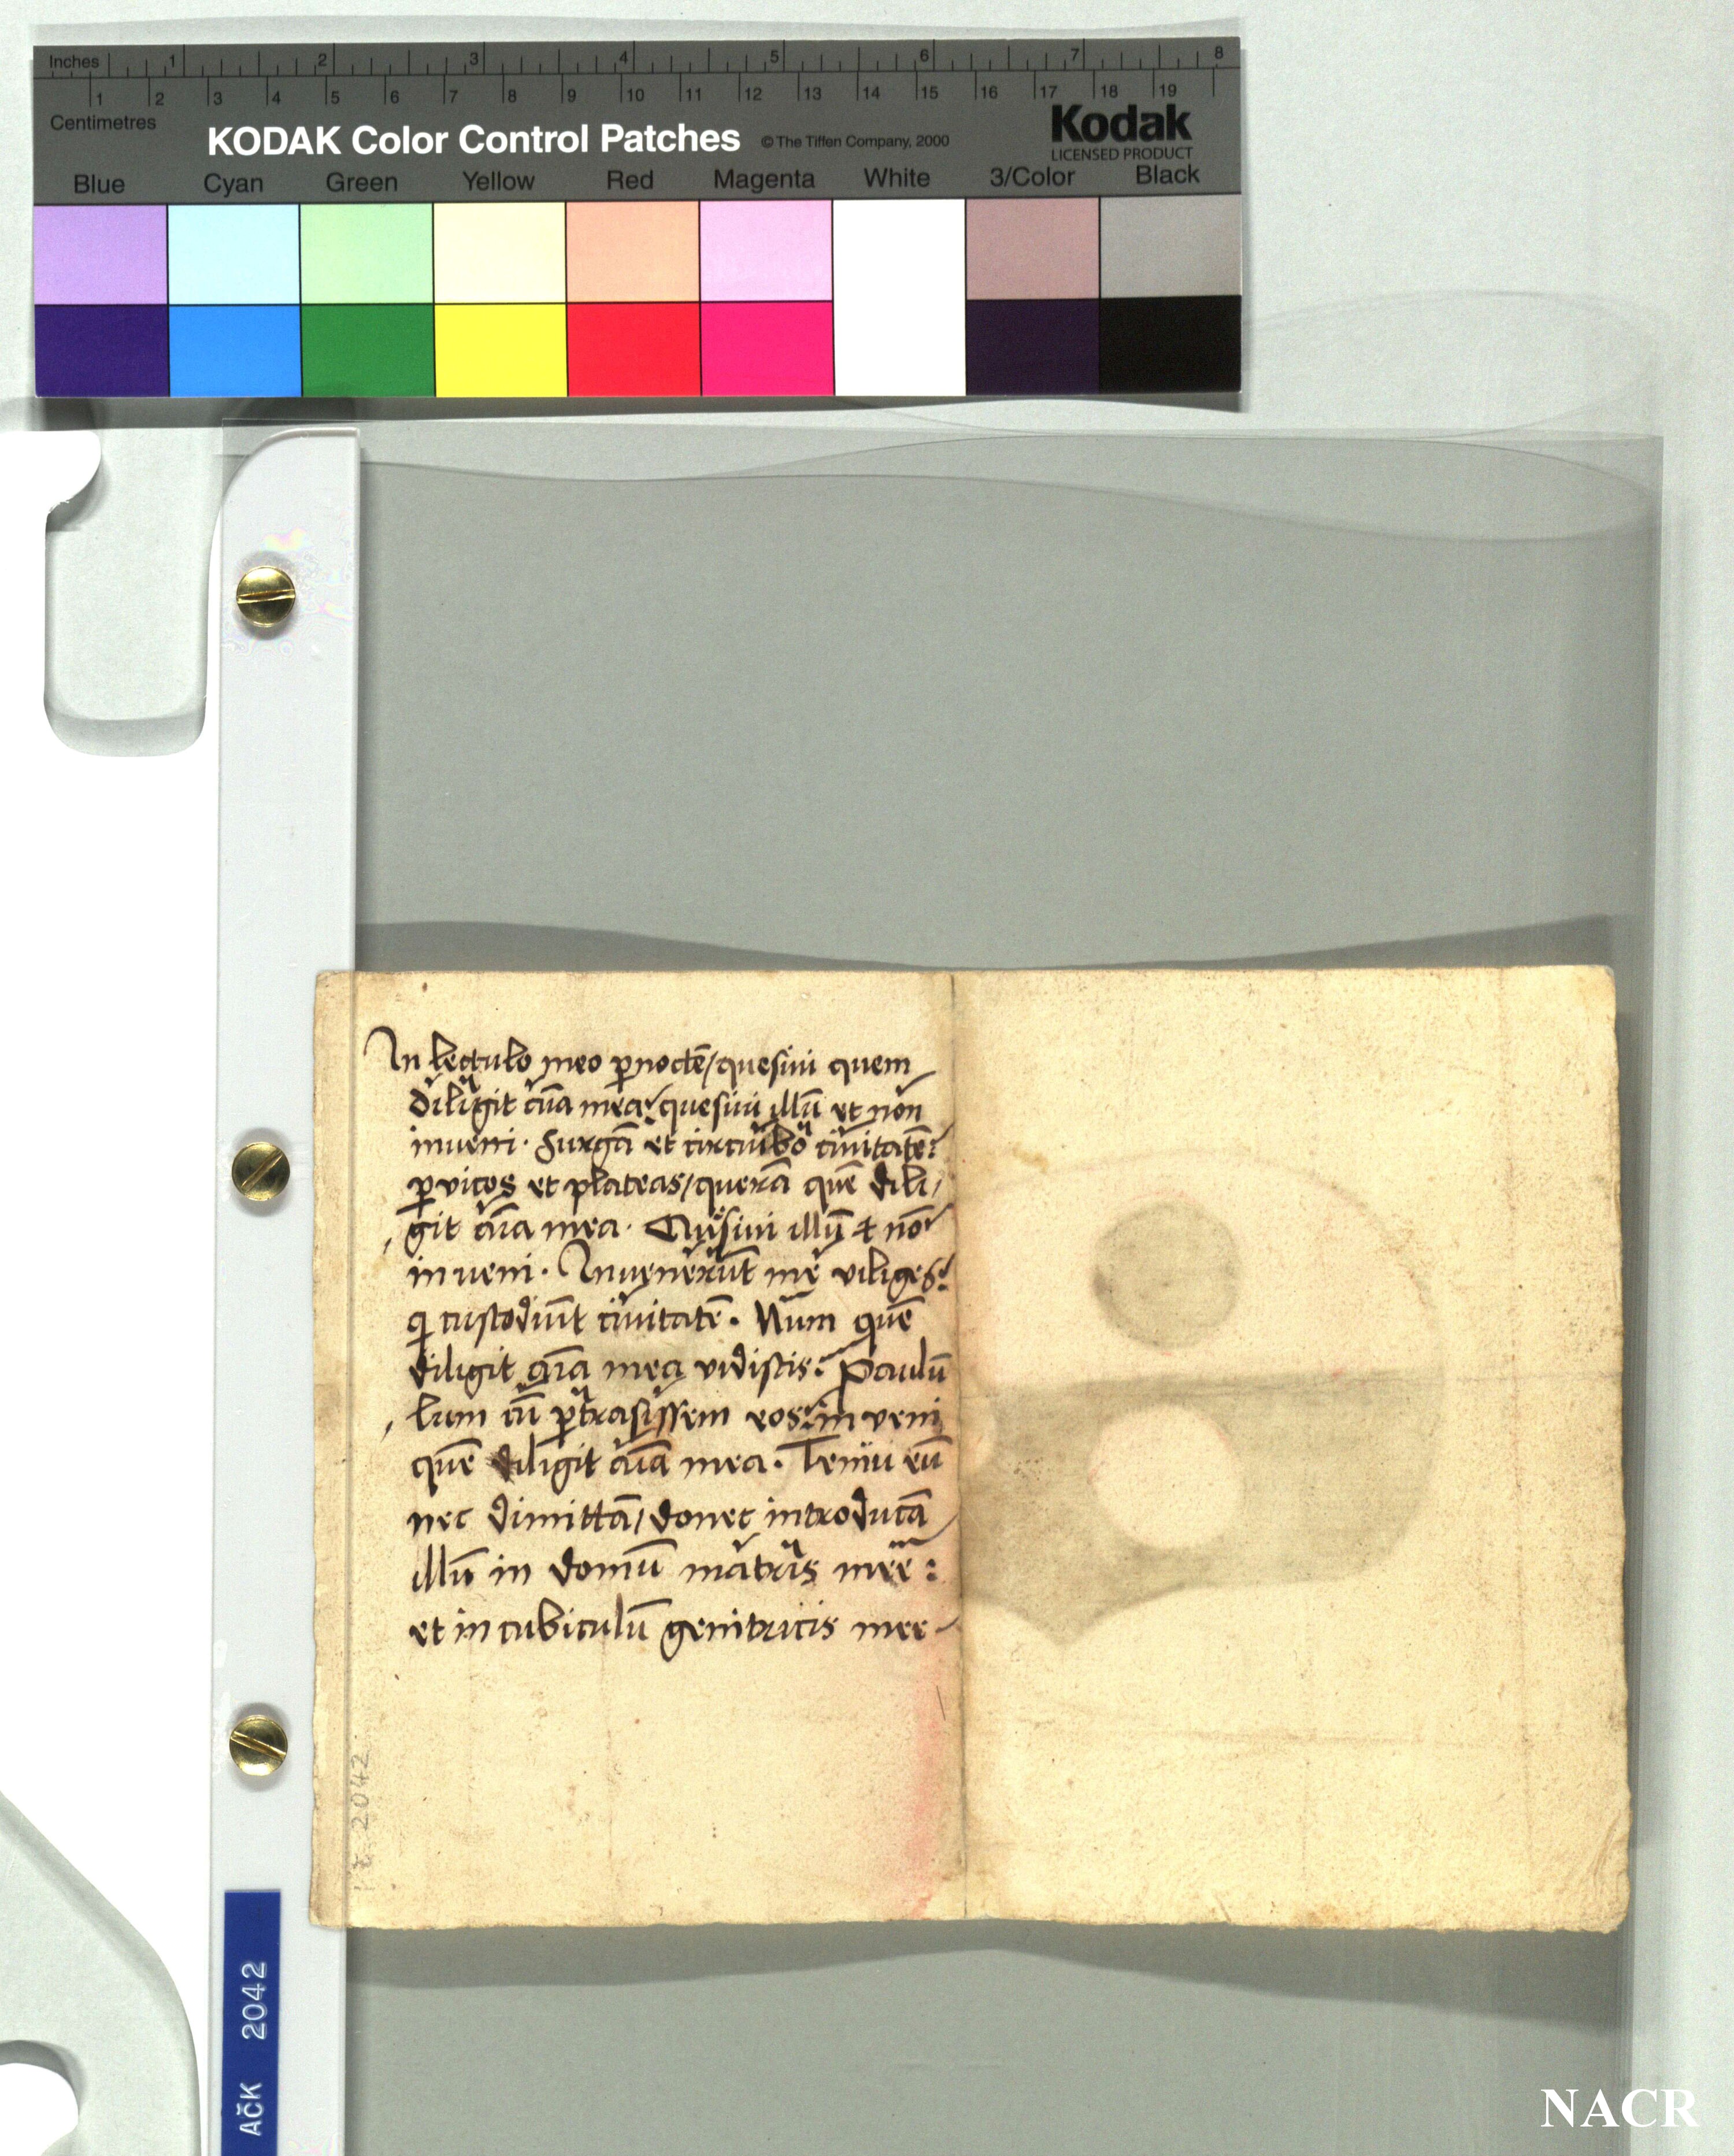 Inches 1 2 3 4 5 6 7 8
1 2 3 4 5 6 7 8 9 10 11 12 13 14 15 16 17 18 19
Centimetres
KODAK Color Control Patches © The Tiffen Company, 2000
Kodak
LICENSED PRODUCT
Blue Cyan Green Yellow Red Magenta White 3/Color Black
In lectulo meo p̱noctē/quesiui quem
diligit aīa mea: quesiui illū et non
inueni. Surgā et circuibo ciuitatē:
p̱ vicos et plateas/querā quē dili/
git aīa mea. Quesiui illū et nō
inueni. Invenerūt me viliges:
q custodiūt ciuitatē. Num quē
diligit aīa mea vidistis: Paulū
lum cū p̱trāsissem eos: in veni
quē diligit aīa mea. Tenui eū
nec dimittā/donec introducā
illū in domū matris mee:
et in cubiculū genitricis mee
2042
AČK 2042
NACR